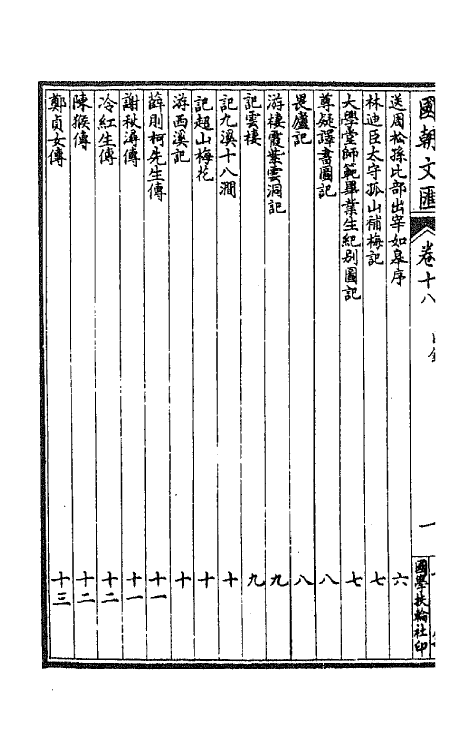 國朝文匯 卷十八 一 國學扶輪社印
送周松孫比部出宰如皋序 六
林迪臣太守孤山補梅記 七
大學堂師範畢業生紀別圖記 七
尊疑譯書圖記 八
畏廬記 八
游棲霞紫雲洞記 九
記雲棲 九
記九溪十八澗 十
記超山梅花 十
游西溪記 十
薛則柯先生傳 十一
謝秋潯傳 十一
冷紅生傳 十二
陳猴傳 十二
鄭貞女傳 十三